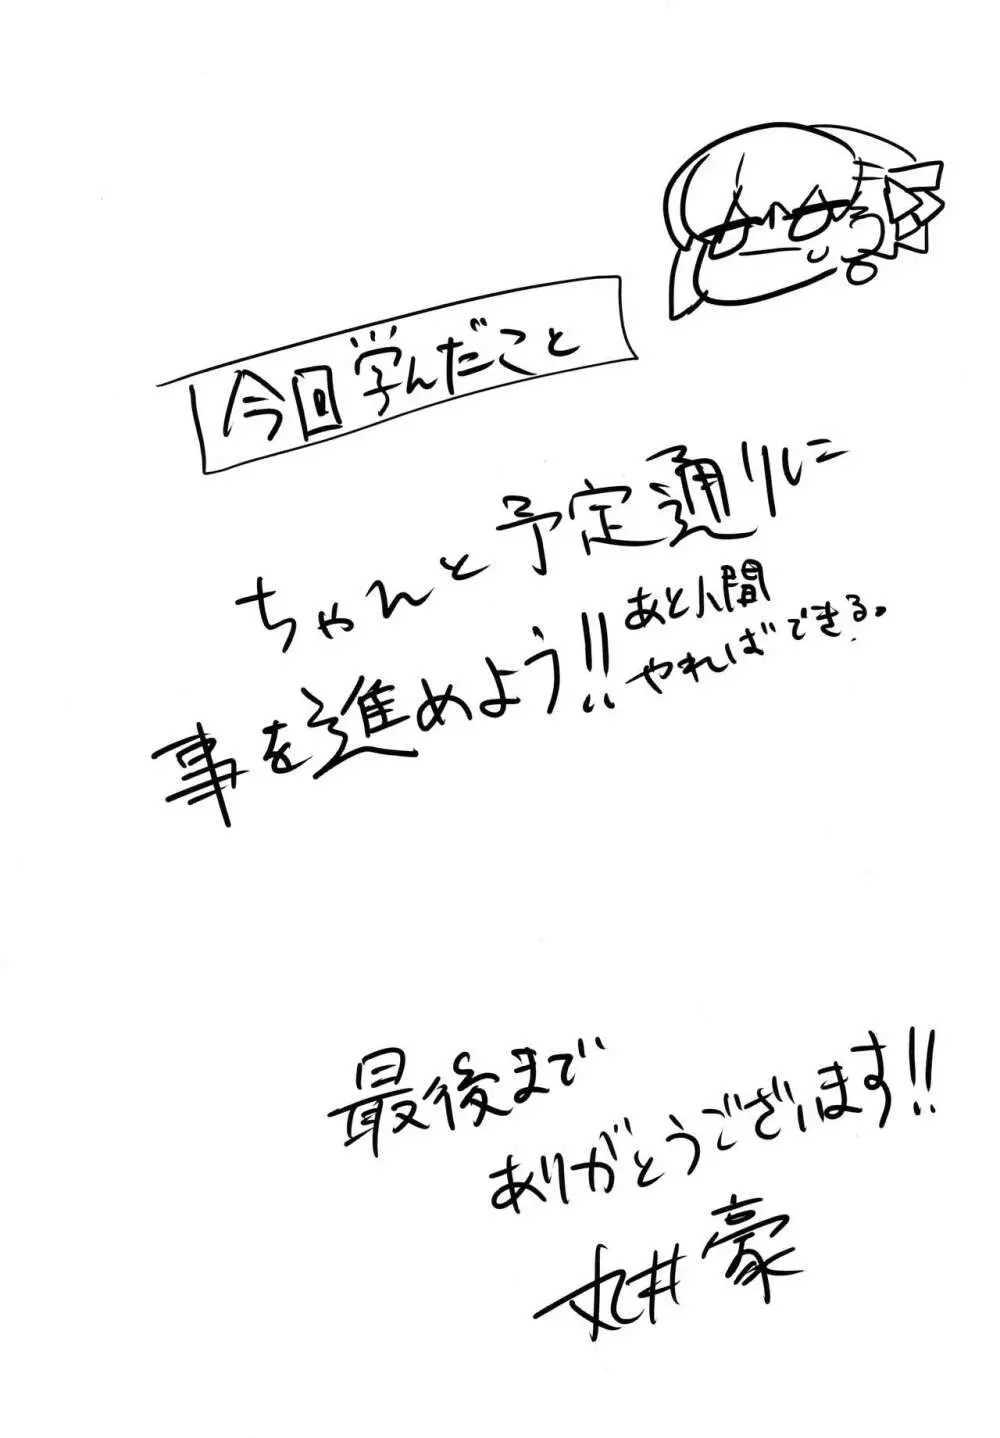 今回学んだこと
ちゃんと予定通りに
事を進めよう!!
あと人間
やればできる。
最後まで
ありがとうございます!!
丸井豪